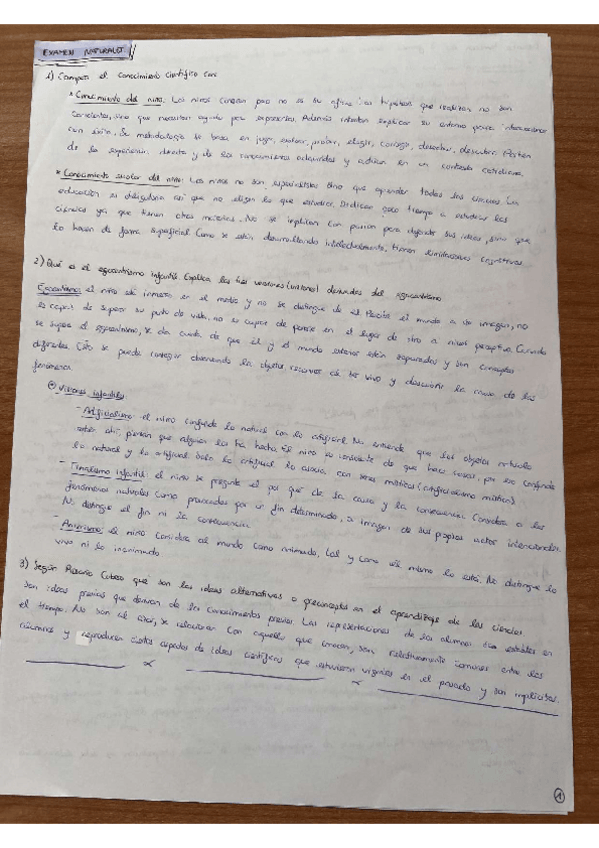 EXAMEN NATURALES
1) Compara el conocimiento científico con:
* Conocimiento del niño: Los niños conocen pero no es su oficio. Las hipótesis que realizan no son
conscientes, sino que necesitan ayuda para expresarlas. Además intentan explicar su entorno para interaccionar
con éxito. Su metodología se basa en jugar, explorar, probar, elegir, corregir, desechar, descubrir. Parten
de la experiencia directa y de los conocimientos adquiridos y actúan en un contexto cotidiano.
* Conocimiento escolar del niño: Los niños no son especialistas sino que aprenden todas las ciencias. La
educación es obligatoria así que no eligen lo que estudiar. Dedican poco tiempo a estudiar las
ciencias ya que tienen otras materias. No se implican con pasión para defender sus ideas, sino que
lo hacen de forma superficial. Como se están desarrollando intelectualmente, tienen limitaciones cognitivas.
2) Qué es el egocentrismo infantil. Explica las tres versiones (visiones) derivadas del egocentrismo
Egocentrismo: el niño está inmerso en el medio y no se distingue de él. Percibe el mundo a su imagen, no
es capaz de superar su punto de vista, no es capaz de ponerse en el lugar de otro a nivel perceptivo. Cuando
se supera el egocentrismo, se da cuenta de que él y el mundo exterior están separados y son conceptos
diferentes. Esto se puede conseguir observando los objetos, seres vivos y descubrir la causa de los
fenómenos.
Visiones infantiles:
- Artificialismo: el niño confunde lo natural con lo artificial. No entiende que los objetos naturales
están ahí, piensan que alguien los ha hecho. El niño es consciente de que hace cosas, por eso confunde
lo natural y lo artificial. Todo lo artificial lo asocia con seres místicos (artificialismo místico)
- Finalismo infantil: el niño se pregunta el por qué de la causa y la consecuencia. Considera a los
fenómenos naturales como provocados por un fin determinado, a imagen de sus propios actos intencionales.
No distingue el fin ni la consecuencia.
- Animismo: el niño considera al mundo como animado, tal y como él mismo lo está. No distingue lo
vivo ni lo inanimado.
3) Según Rosario Cubero que son las ideas alternativas o preconceptos en el aprendizaje de las ciencias
Son ideas previas que derivan de los conocimientos previos. Las representaciones de los alumnos son estables en
el tiempo. No son al azar, se relacionan con aquello que conocen, son relativamente comunes entre los
alumnos y reproducen ciertos aspectos de ideas científicas que estuvieron vigentes en el pasado y son implícitas.
1